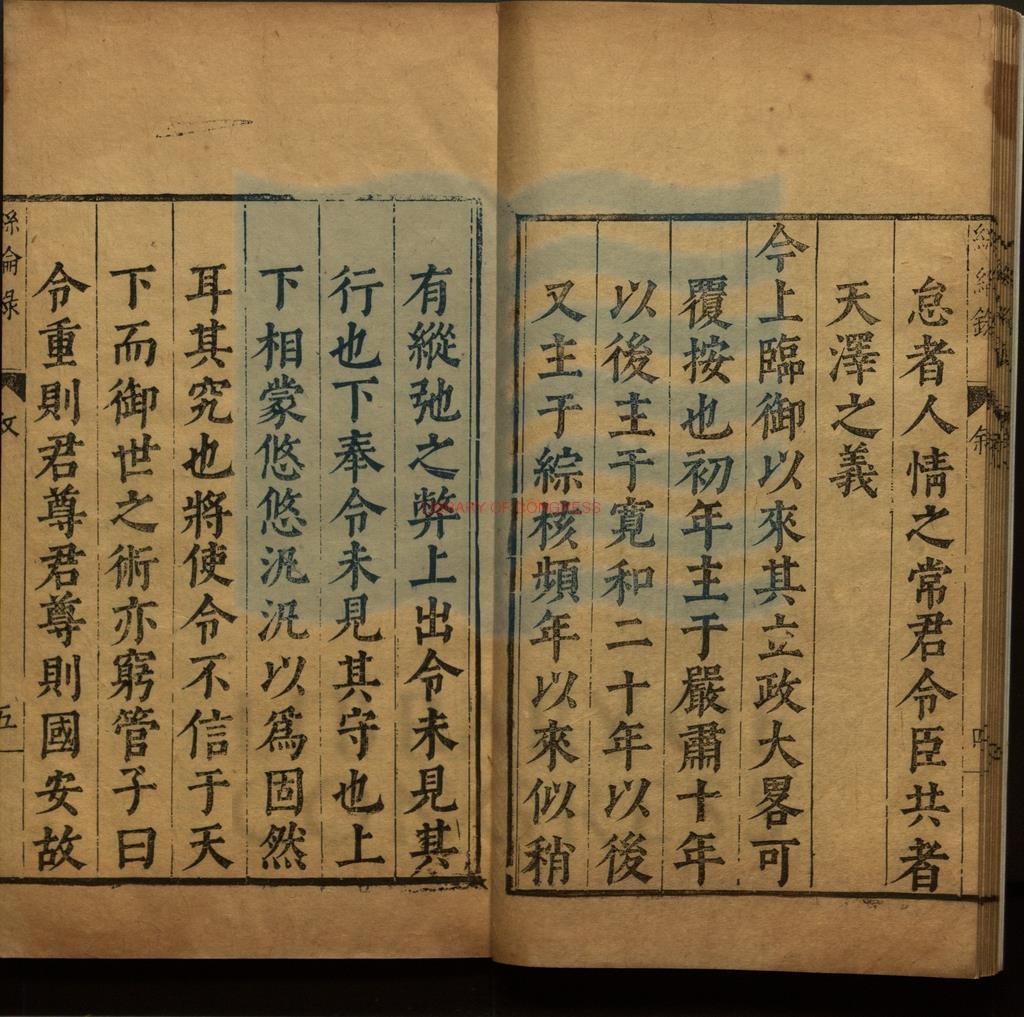 怠者人情之常君令臣共者
天澤之義
今上臨御以來其立政大畧可
覆按也初年主于嚴肅十年
以後主于寬和二十年以後
又主于綜核頻年以來似稍
有縱弛之弊上出令未見其
行也下奉令未見其守也上
下相蒙悠悠汎汎以爲固然
耳其究也將使令不信于天
下而御世之術亦窮管子曰
令重則君尊君尊則國安故
絲綸錄
五
LIBRARY OF CONGRESS